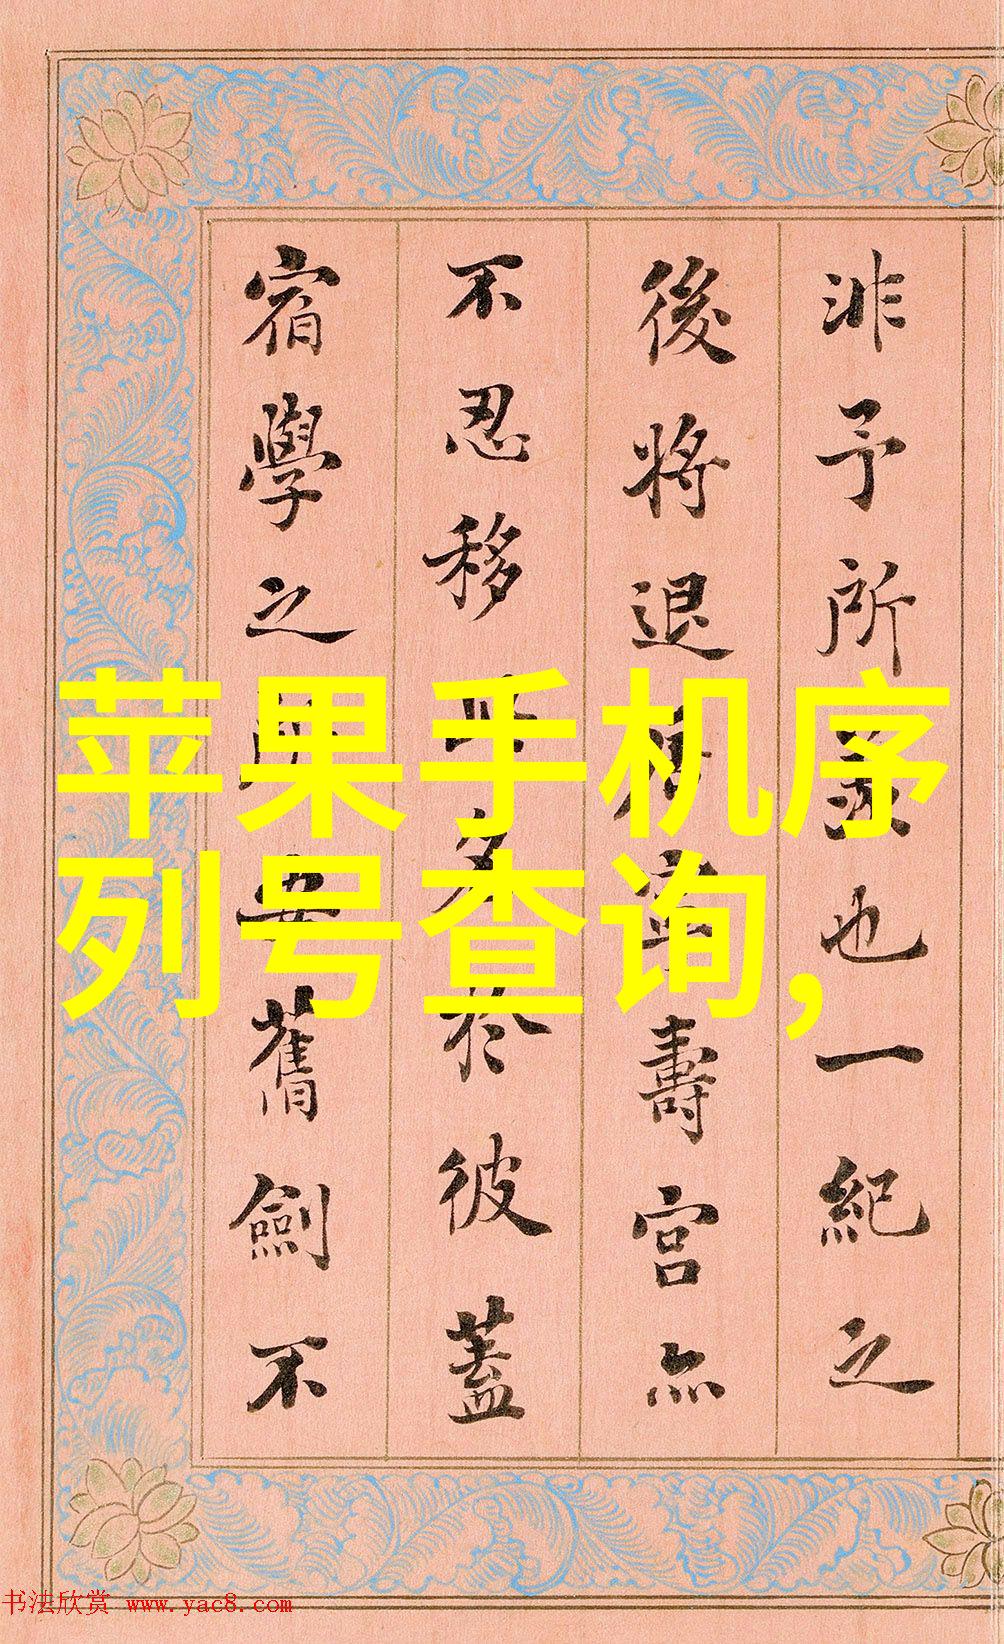 非予所也一紀之
後將退寧壽宮亦
不忍移於彼蓋
宿學之安舊劍不
苹果手机序
列号查询,
书法欣赏 www.yac8.com